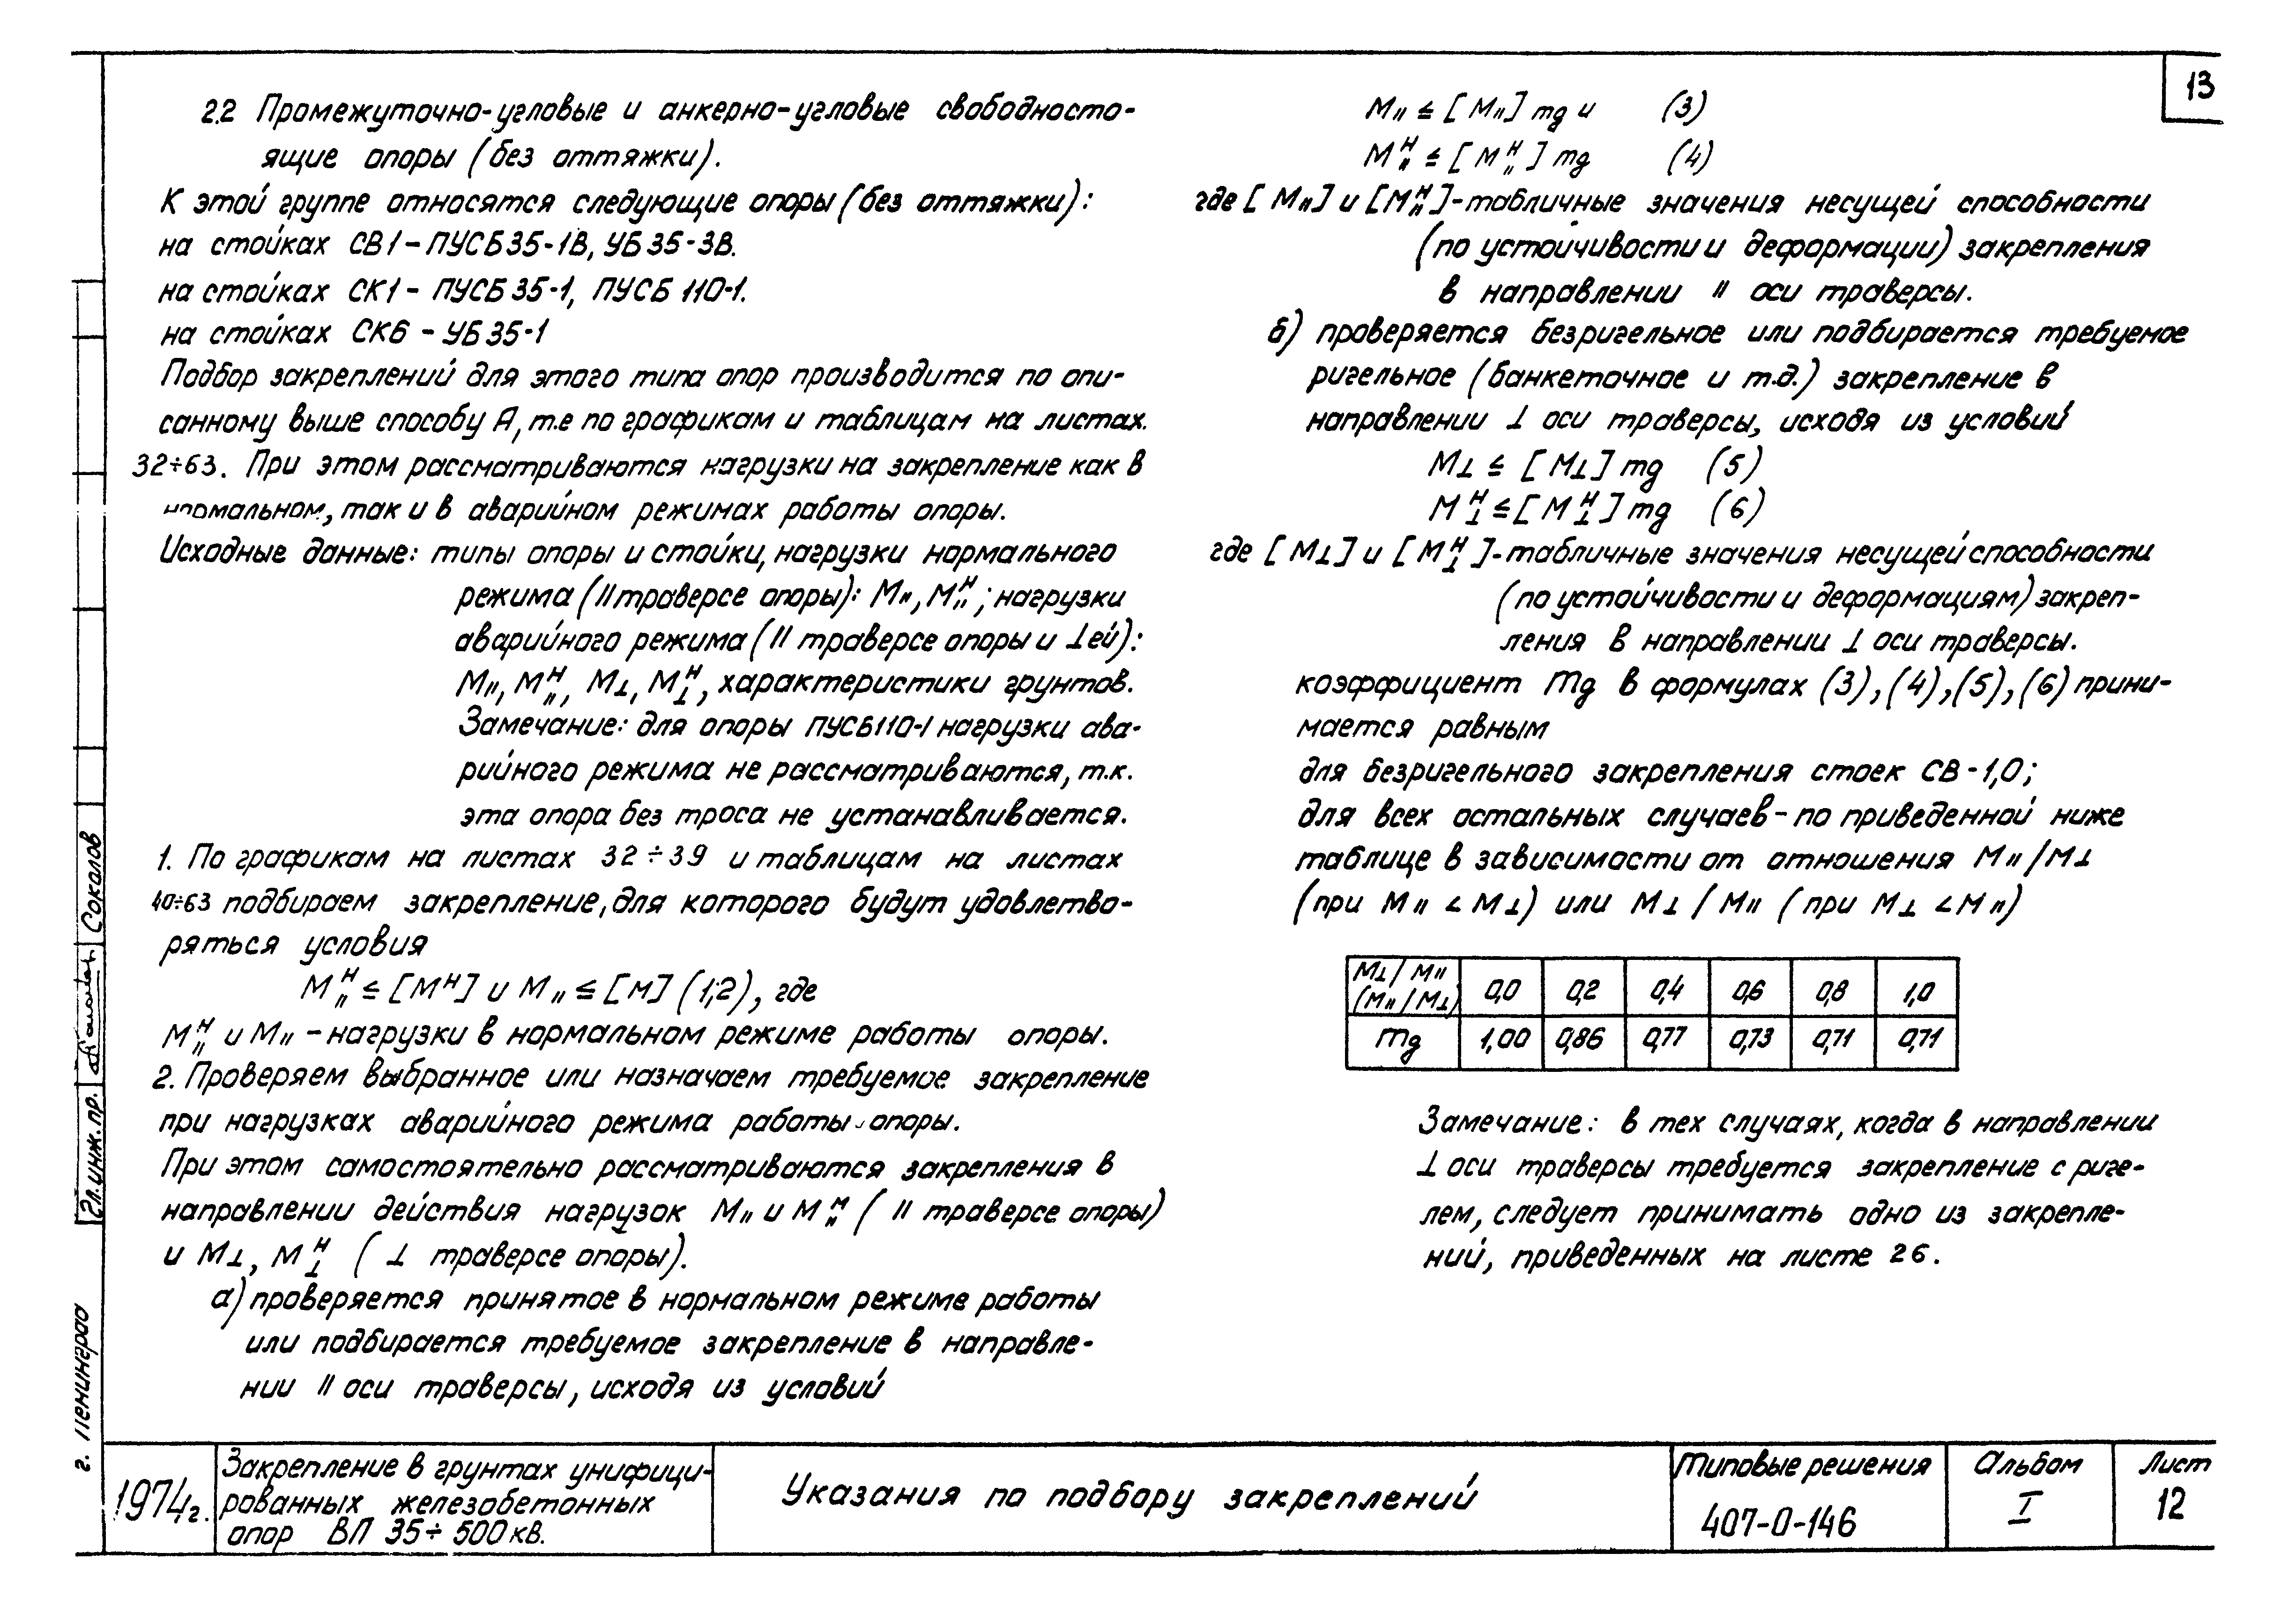 13
2.2 Промежуточно-угловые и анкерно-угловые свободносто-
ящие опоры (без оттяжки).
К этой группе относятся следующие опоры (без оттяжки):
на стойках СВ1 - ПУСБ35-1В, УБ35-3В.
на стойках СК1 - ПУСБ35-1, ПУСБ 110-1.
на стойках СК6 - УБ35-1
Подбор закреплений для этого типа опор производится по опи-
санному выше способу А, т.е по графикам и таблицам на листах.
32÷63. При этом рассматриваются нагрузки на закрепление как в
нормальном, так и в аварийном режимах работы опоры.
Исходные данные: типы опоры и стойки, нагрузки нормального
режима (II траверсе опоры): M॥, M॥ᴴ; нагрузки
аварийного режима (II траверсе опоры и ⊥ ей):
M॥, M॥ᴴ, M⊥, M⊥ᴴ, характеристики грунтов.
Замечание: для опоры ПУСБ110-1 нагрузки ава-
рийного режима не рассматриваются, т.к.
эта опора без троса не устанавливается.
1. По графикам на листах 32÷39 и таблицам на листах
40÷63 подбираем закрепление, для которого будут удовлетво-
ряться условия
M॥ᴴ ≤ [Mᴴ] и M॥ ≤ [M] (1;2), где
M॥ᴴ и M॥ - нагрузки в нормальном режиме работы опоры.
2. Проверяем выбранное или назначаем требуемое закрепление
при нагрузках аварийного режима работы опоры.
При этом самостоятельно рассматриваются закрепления в
направлении действия нагрузок M॥ и M॥ᴴ (II траверсе опоры)
и M⊥, M⊥ᴴ (⊥ траверсе опоры).
а) проверяется принятое в нормальном режиме работы
или подбирается требуемое закрепление в направле-
нии II оси траверсы, исходя из условий
M॥ ≤ [M॥] mg и (3)
M॥ᴴ ≤ [M॥ᴴ] mg (4)
где [M॥] и [M॥ᴴ] - табличные значения несущей способности
(по устойчивости и деформации) закрепления
в направлении II оси траверсы.
б) проверяется безригельное или подбирается требуемое
ригельное (банкеточное и т.д.) закрепление в
направлении ⊥ оси траверсы, исходя из условий
M⊥ ≤ [M⊥] mg (5)
M⊥ᴴ ≤ [M⊥ᴴ] mg (6)
где [M⊥] и [M⊥ᴴ] - табличные значения несущей способности
(по устойчивости и деформациям) закреп-
ления в направлении ⊥ оси траверсы.
коэффициент mg в формулах (3), (4), (5), (6) прини-
мается равным
для безригельного закрепления стоек СВ - 1,0;
для всех остальных случаев - по приведенной ниже
таблице в зависимости от отношения M॥/M⊥
(при M॥ < M⊥) или M⊥/M॥ (при M⊥ < M॥)
M⊥/M॥ (M॥/M⊥) 0,0 0,2 0,4 0,6 0,8 1,0
mg 1,00 0,86 0,77 0,73 0,71 0,71
Замечание: в тех случаях, когда в направлении
⊥ оси траверсы требуется закрепление с риге-
лем, следует принимать одно из закрепле-
ний, приведенных на листе 26.
г. Ленинград
Гл. инж. пр. Соколов
1974г.
Закрепление в грунтах унифици-
рованных железобетонных
опор ВЛ 35÷500 кв.
Указания по подбору закреплений
Типовые решения
407-0-146
Альбом
I
Лист
12